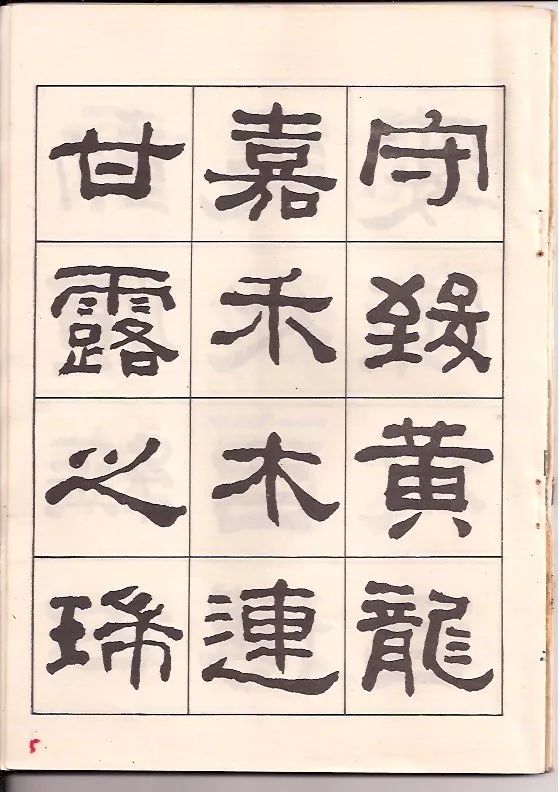 守致黃龍
嘉禾木連
甘露之瑞
5